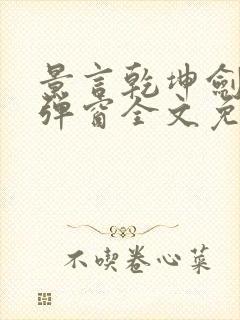 景言乾坤劍
彈窗全文免
不喫卷心菜